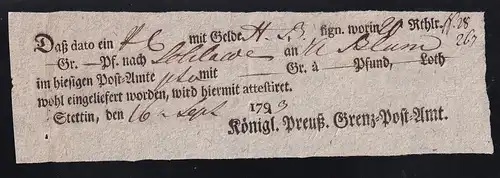 Daß dato ein P C mit Gelde H. B. sign. worin 20 Rthlr. 28
— Gr. — Pf. nach Schlawe an M Blum 267
im hiesigen Post-Amte mit — Gr. à — Pfund, — Loth
wohl eingeliefert worden, wird hiermit attestiret.
Stettin, den 16 Sept 1793
Königl. Preuß. Grenz-Post-Amt.